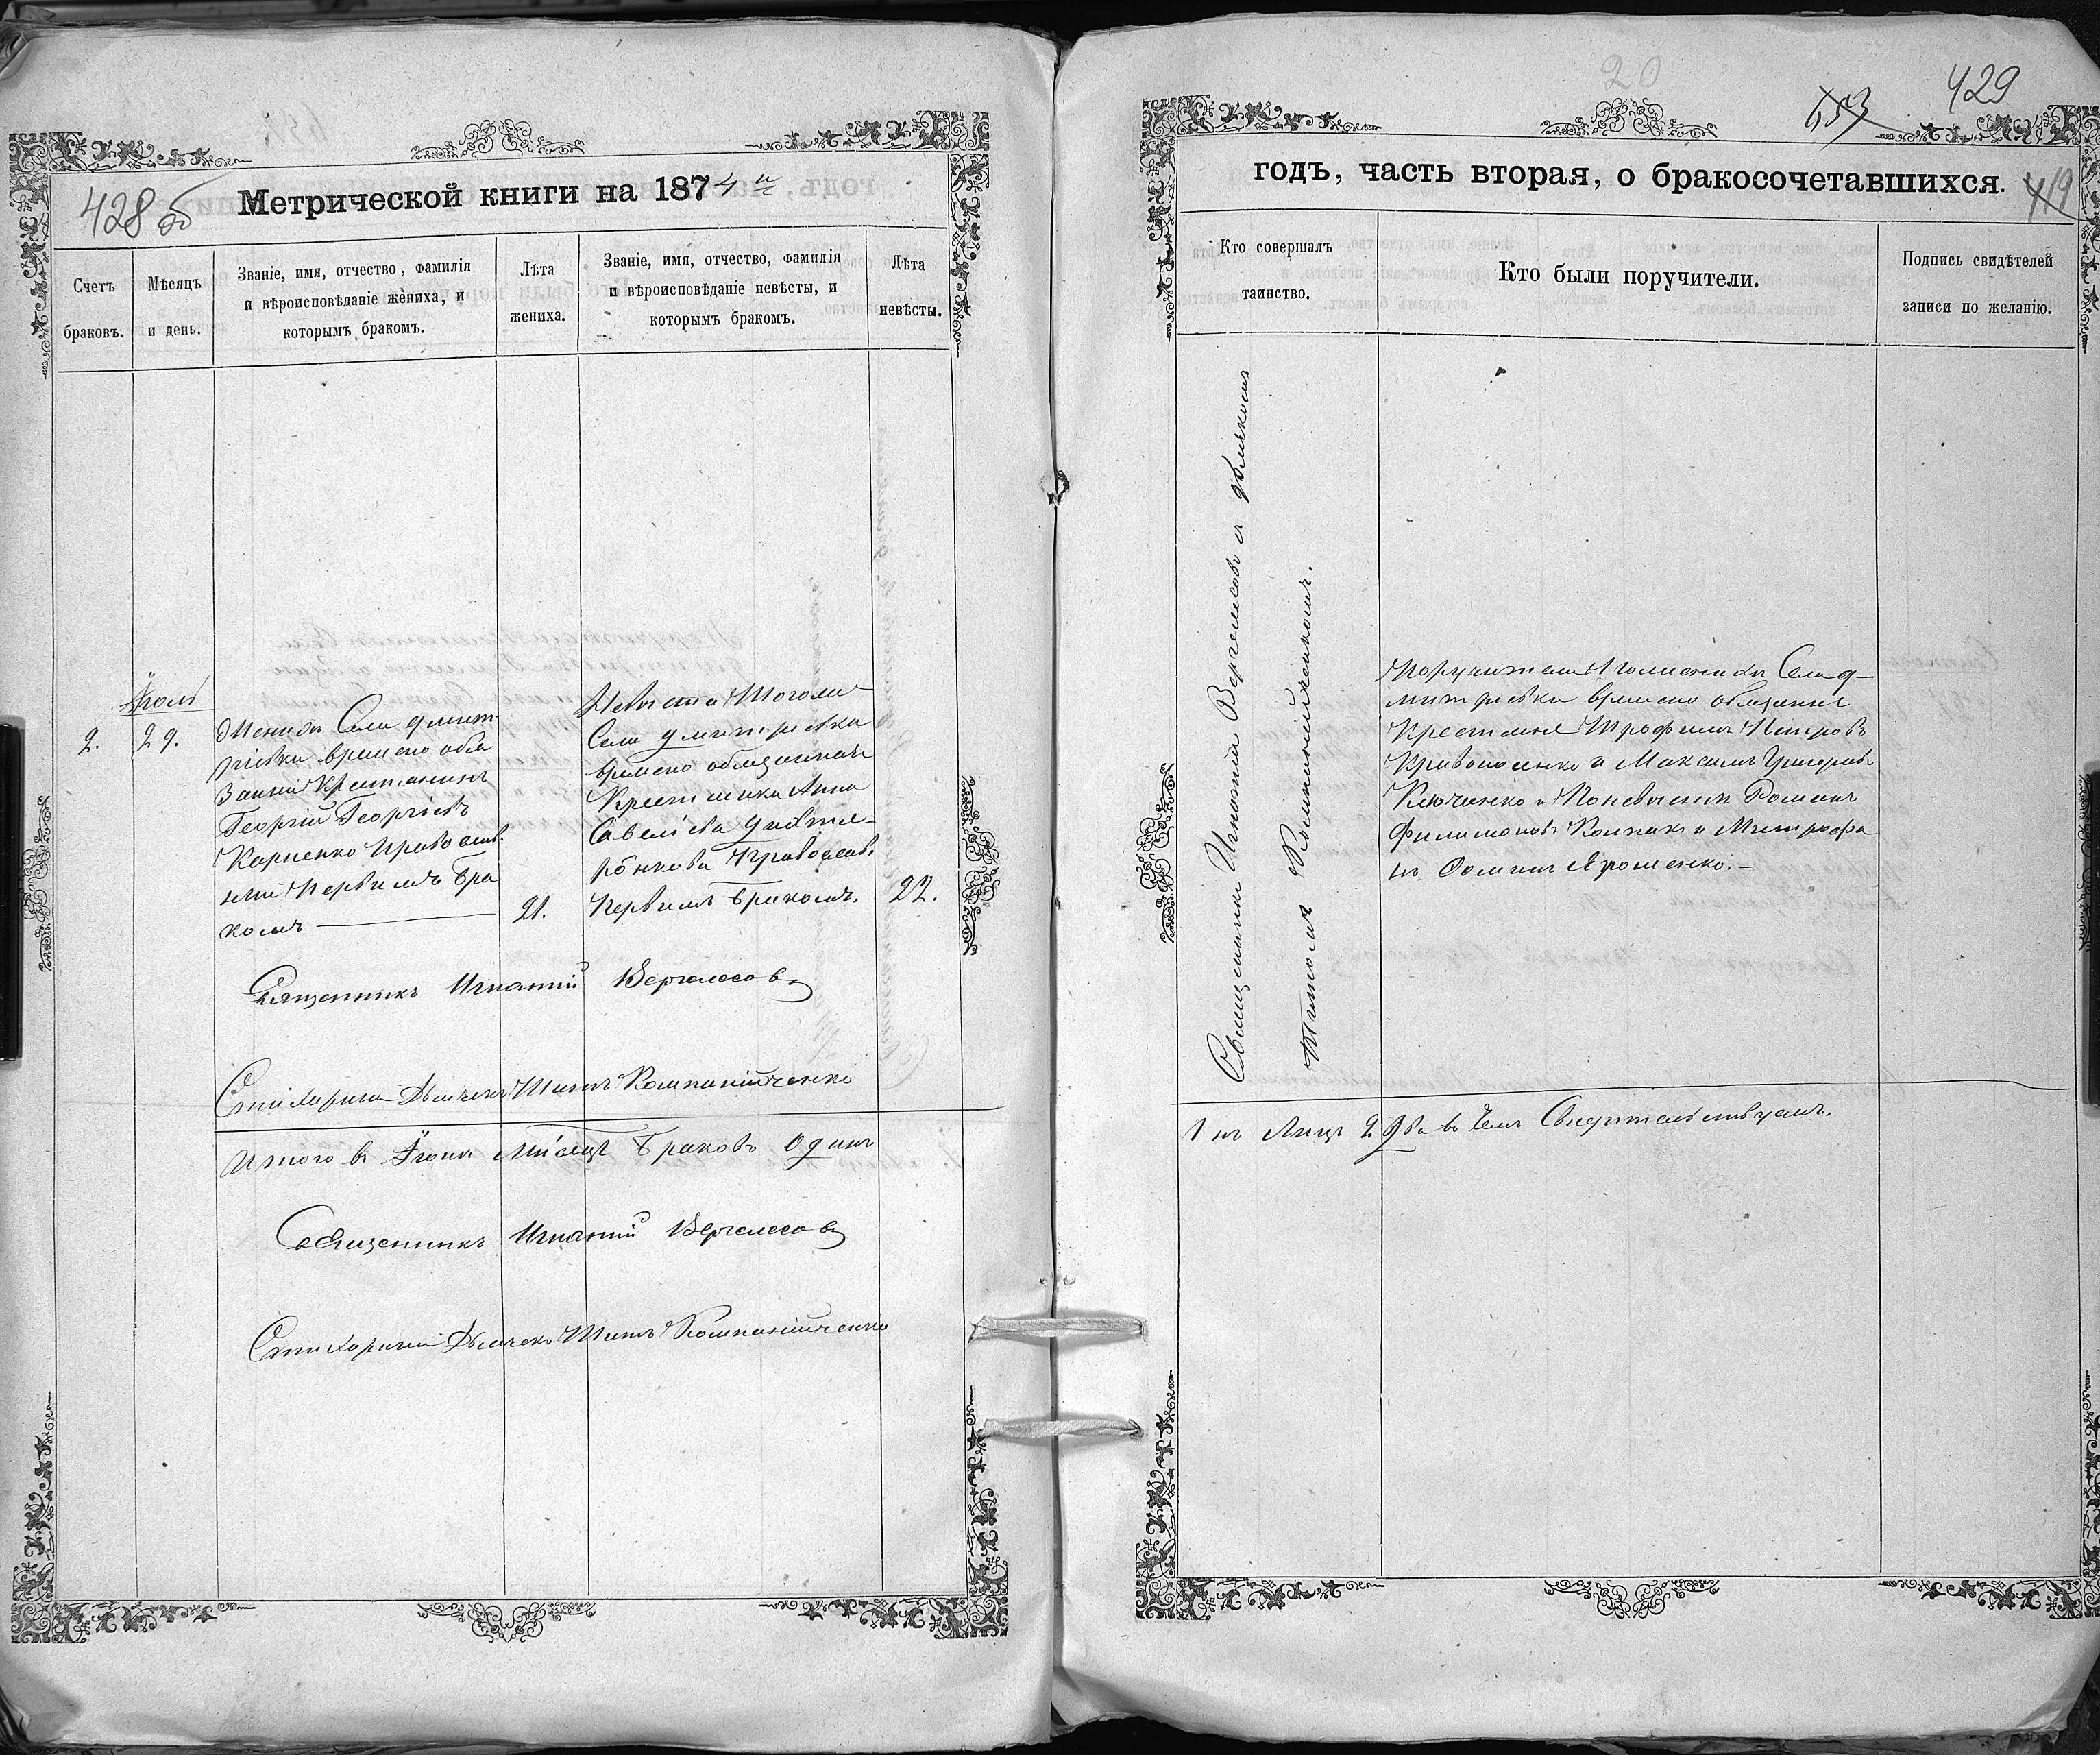 428 об
Метрической книги на 1874 й
Счетъ браковъ.
Мѣсяцъ и день.
Званіе, имя, отчество, фамилія
и вѣроисповѣданіе жениха, и
которымъ бракомъ.
Лѣта жениха.
Званіе, имя, отчество, фамилія
и вѣроисповѣданіе невѣсты, и
которымъ бракомъ.
Лѣта невѣсты.
2.
29.
Женихъ Села Дмит-
ріевки времено обя
занный Крестянинъ
Георгій Георгіевъ
Карпенко Православ.
ный первымъ бра
комъ
21.
Невеста Тогоже
Села Дмитріевки
времено обязанная
Крестянка Анна
Савелиева
Православ.
первымъ бракомъ.
22.
Священникъ Игнатій Вергелесовъ
Стихарный Дьячекъ Титъ Компанійченко
Итого в месяце браковъ Одинъ
Священникъ Игнатій Вергелесовъ
Стихарный Дьячекъ Титъ Компанійченко
20
429
419
годъ, часть вторая, о бракосочетавшихся.
Кто совершалъ
таинство.
Кто были поручители.
Подпись свидѣтелей
записи по желанію.
Священникъ Игнатій Вергелесовъ с дьячкомъ
Титомъ Компанійченкомъ.
Поручители По женихе Села Д-
митріевки времено обязанные
Крестяне Трофимъ Петровъ
и Максимъ Григоріевъ
Ключенко и По невесте Романъ
Филимоновъ Колпакъ и Митрофа
нъ Фоминъ Ярошенко.—
2 два в чемъ Свидетельствуемъ.